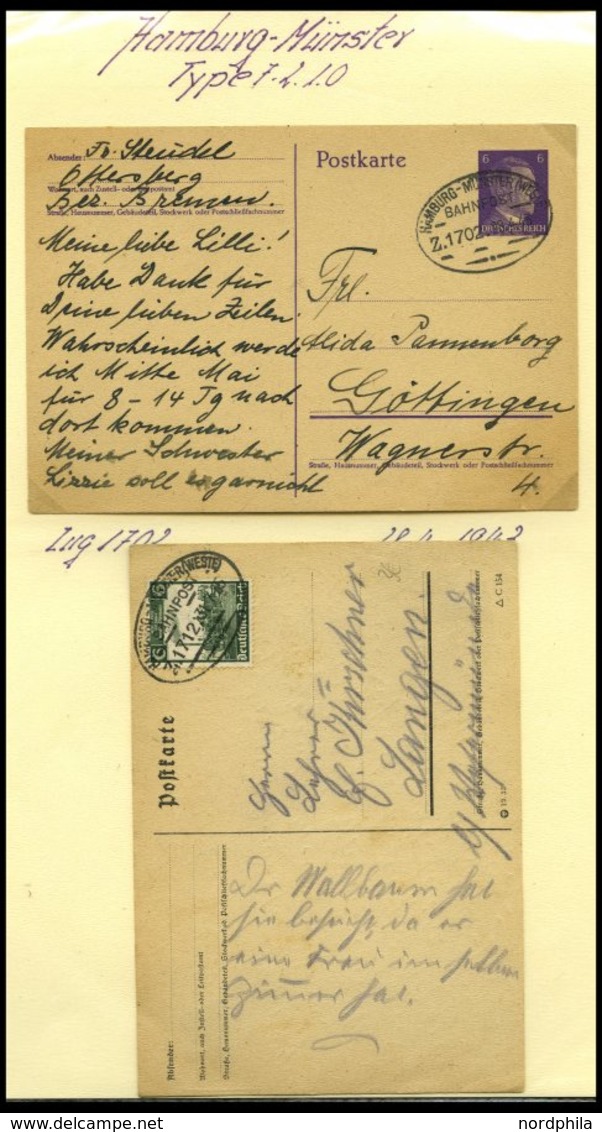 Hamburg-Münster
Type 7.2.1.0
Absender: Fr. Steudel
Ottersberg
Wohnort, auch Zustell- oder Leitpostamt
Bez. Bremen.
Straße, Hausnummer, Gebäudeteil, Stockwerk oder Postschließfachnummer
Meine liebe Lilli!
Habe Dank für
Deine lieben Zeilen.
Wahrscheinlich werde
ich Mitte Mai
für 8-14 Tg nach
dort kommen.
Meiner Schwester
Lizzie soll es garnicht
Postkarte
6 6
DEUTSCHES REICH
HAMBURG-MÜNSTER (WESTF)
BAHNPOST
Z.1702
Frl.
Alida Pannenborg
Göttingen
Wagnerstr.
Straße, Hausnummer, Gebäudeteil, Stockwerk oder Postschließfachnummer
4.
Zug 1702
28.4.1942
(WESTF)
BAHNPOST
Z.1712
6 6
Deutsches Reich
Postkarte
Herrn
Lehrer
Langen
Straße, Hausnummer, Gebäudeteil, Stockwerk od. Postschließfachnummer
△ C 154
Absender:
Wohnort, auch Zustell- oder Leitpostamt
Straße, Hausnummer, Gebäudeteil, Stockwerk od. Postschließfachnummer
Dr Wallbaum hat
sie besucht, da er
eine Frau im selben
Zimmer hat.
www.delcampe.net
nordphila